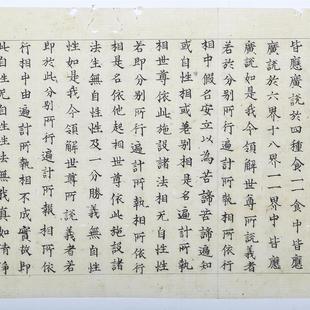 皆應廣說於四種食一一食中皆應
廣說於六界十八界一一界中皆應
廣說如是我今領解世尊所說義者
若於分別所行遍計所執相所依行
相中假名安立以為苦諦苦諦遍知
或自性相或差別相是名遍計所執
相世尊依此施設諸法相無自性性
若即分別所行遍計所執相所依行
相是名依他起相世尊依此施設諸
法生無自性性及一分勝義無自性
性如是我今領解世尊所說義者若
即於此分別所行遍計所執相所依
行相中由遍計所執相不成實故即
此自性無自性性法無我真如清淨